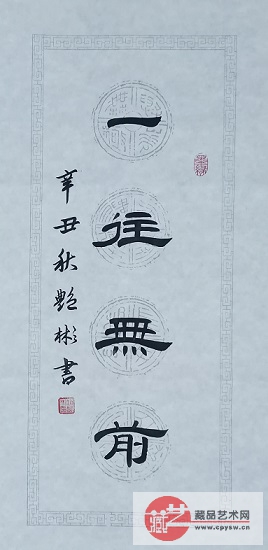 一往無前
辛丑秋艷彬書
藏品艺术网
www.cpysw.cn